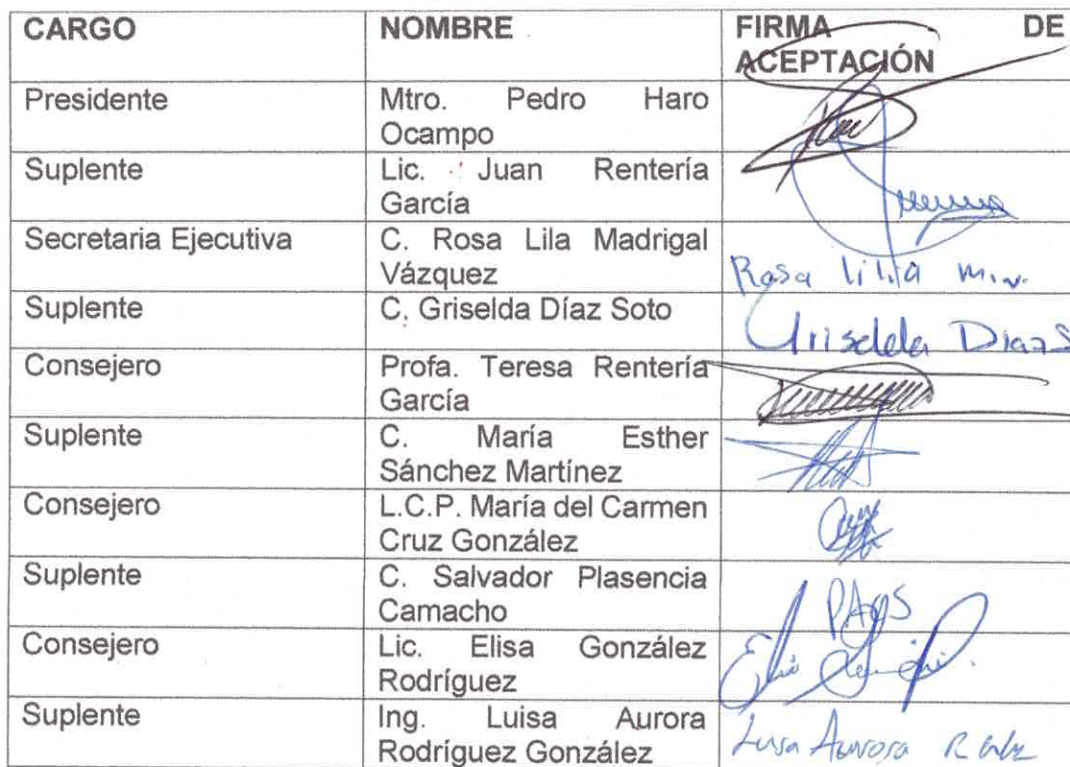 CARGO NOMBRE FIRMA DE
ACEPTACIÓN
Presidente Mtro. Pedro Haro
Ocampo
Suplente Lic. Juan Rentería
García
Secretaria Ejecutiva C. Rosa Lila Madrigal
Vázquez
Rosa lilia m.v.
Suplente C. Griselda Díaz Soto
Griselda Diaz S
Consejero Profa. Teresa Rentería
García
Suplente C. María Esther
Sánchez Martínez
Consejero L.C.P. María del Carmen
Cruz González
Suplente C. Salvador Plasencia
Camacho
Consejero Lic. Elisa González
Rodríguez
Suplente Ing. Luisa Aurora
Rodríguez González
Luisa Aurora R